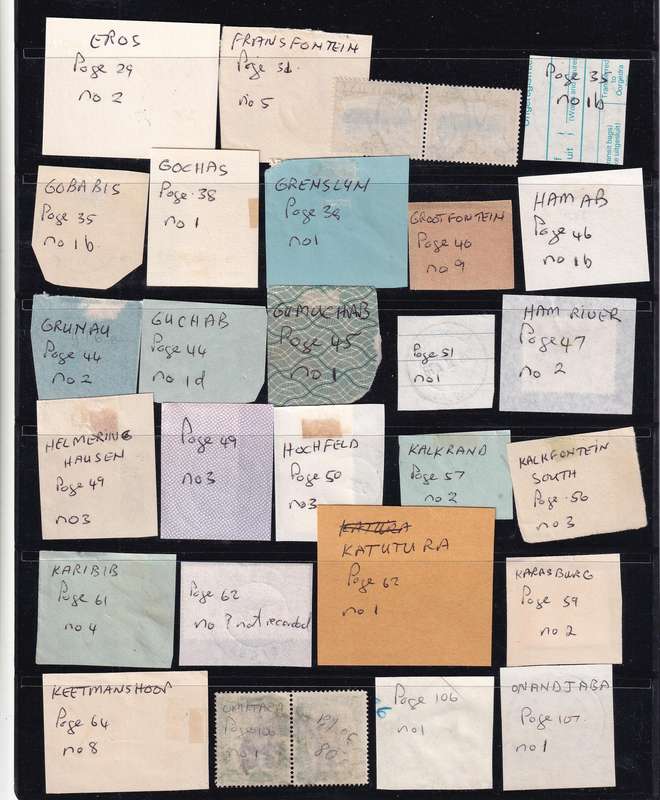 EROS
Page 29
no 2
FRANSFONTEIN
Page 31
no 5
Page 35
no 1b
GOBABIS
Page 35
no 1b.
GOCHAS
Page 38
no 1
GRENSLYN
Page 39
no 1
GROOTFONTEIN
Page 40
no 9
HAM AB
Page 46
no 1b
GRUNAU
Page 44
no 2
GUCHAB
Page 44
no 1d
GUMUCHAB
Page 45
no 1
Page 51
no 1
HAM RIVER
Page 47
no 2
HELMERING
HAUSEN
Page 49
no 3
Page 49
no 3
HOCHFELD
Page 50
no 3
KALKRAND
Page 57
no 2
KALKFONTEIN
SOUTH
Page 56
no 3
KARIBIB
Page 61
no 4
Page 62
no ? not recorded
KATUTURA
Page 62
no 1
KARASBURG
Page 59
no 2
KEETMANSHOOP
Page 64
no 8
Page 106
no 1
Page 106
no 1
ONANDJABA
Page 107
no 1